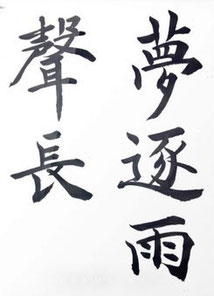 夢逐雨
聲長